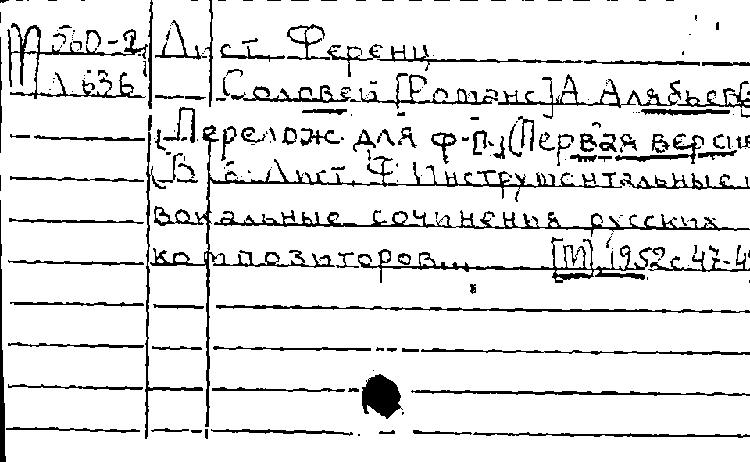 М 560-2 Лист, Ференц
Л 636 Соловей [Романс] А. Алябьева
[Перелож. для ф-п.] (Первая версия
В кн: Лист, Ф. Инструментальные и
вокальные сочинения русских
композиторов... [М], 1952 с.47-4